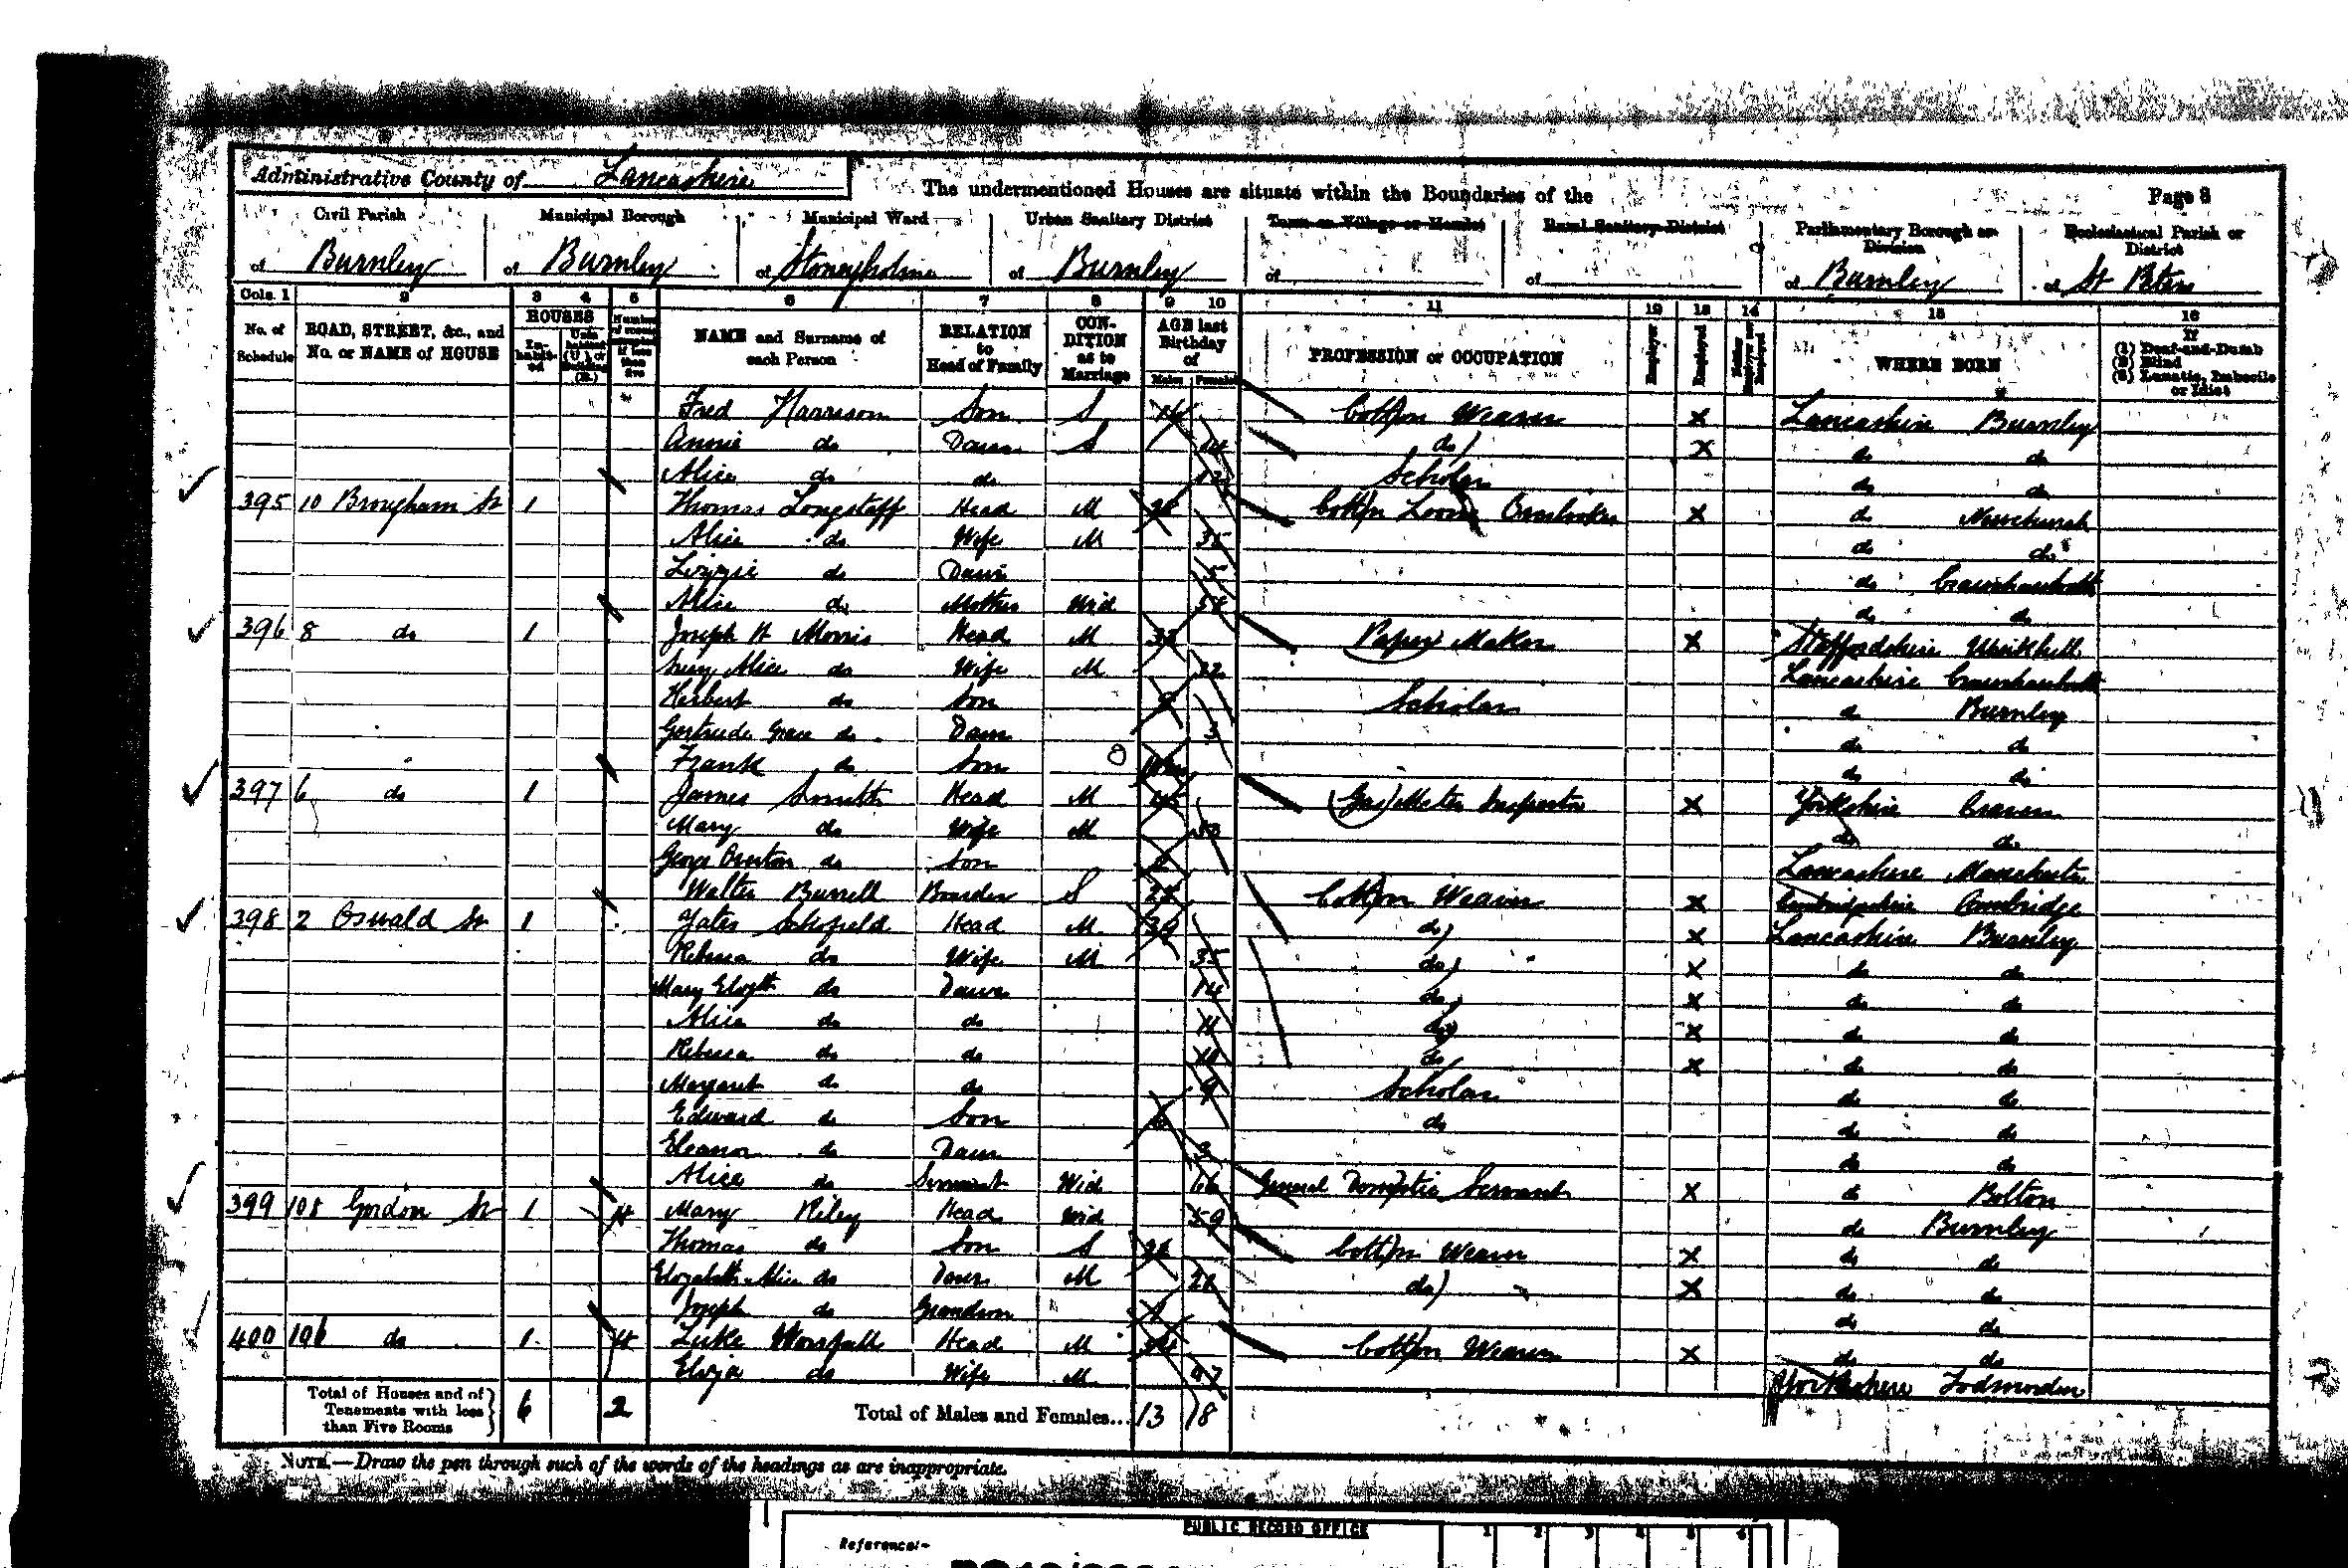 Administrative County of Lancashire
The undermentioned Houses are situate within the Boundaries of the
Page 8
Civil Parish Municipal Borough Municipal Ward Urban Sanitary District Town or Village or Hamlet Rural Sanitary District Parliamentary Borough or Division Ecclesiastical Parish or District
of Burnley of Burnley of Stoneyholme of Burnley of of of Burnley of St Peters
Cols. 1 2 3 4 5 6 7 8 9 10 11 12 13 14 15 16
No. of Schedule ROAD, STREET, &c., and No. or NAME of HOUSE HOUSES Inhabited Uninhabited (U.), or Building (B.) Number of rooms occupied if less than five NAME and Surname of each Person RELATION to Head of Family CONDITION as to Marriage AGE last Birthday of Males Females PROFESSION or OCCUPATION Employer Employed Neither Employer nor Employed WHERE BORN If (1) Deaf-and-Dumb (2) Blind (3) Lunatic, Imbecile or Idiot
Fred Harrison Son S 16 Cotton Weaver X Lancashire Burnley
Annie do Daur S 14 do X do do
Alice do do Scholar do do
395 10 Brougham St 1 Thomas Longstaff Head M Cotton Loom Overlooker X do Newchurch
Alice do Wife M 35 do do
Lizzie do Daur 5 do Crawshawbooth
Alice do Mother Wid do do
396 8 do 1 Joseph H Morris Head M Paper Maker X Staffordshire
Lucy Alice do Wife M 32 Lancashire Crawshawbooth
Herbert do Son 9 Scholar do Burnley
Gertrude Grace do Daur 3 do do
Frank do Son do do
397 6 do 1 James Smith Head M Gas Meter Inspector X Yorkshire Craven
Mary do Wife M do do
George do Son Lancashire Manchester
Walter Burrell Boarder S Cotton Weaver X Cambridgeshire Cambridge
398 2 Oswald St 1 Yates Schofield Head M 39 do X Lancashire Burnley
Rebecca do Wife M 35 do X do do
Mary Elizth do Daur 14 do X do do
Alice do do 11 do X do do
Rebecca do do 10 do X do do
Margaret do do 9 Scholar do do
Edward do Son do do do
Eleanor do Daur 3 do do
Alice do Servant Wid 66 General Domestic Servant X do Bolton
399 108 Gordon St 1 4 Mary Riley Head Wid 59 do Burnley
Thomas do Son S Cotton Weaver X do do
Elizabeth Alice do Daur M do X do do
Joseph do Grandson do do
400 106 do 1 4 Luke Head M Cotton Weaver X do do
Eliza do Wife M Yorkshire Todmorden
Total of Houses and of Tenements with less than Five Rooms 6 2 Total of Males and Females... 13 18
NOTE.—Draw the pen through such of the words of the headings as are inappropriate.
PUBLIC RECORD OFFICE 1 2 3 4 5 6
Reference:-